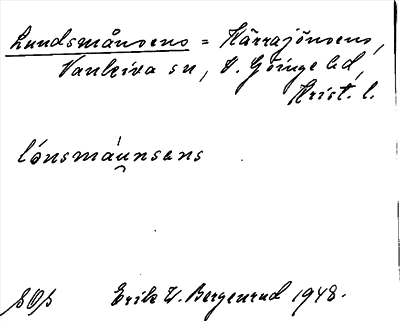 Lundsmånsens = Härrajönsens,
Vankiva sn, V. Göinge hd,
Krist. l.
lónsmáunsens
SOs Erik W. Bergenrud 1948.